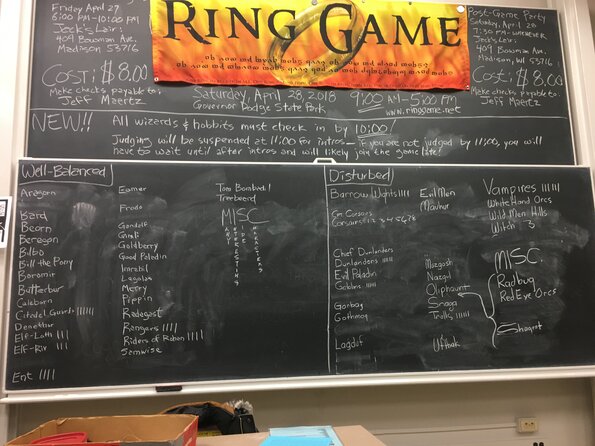 Friday April 27
6:00 PM-10:00 PM
Jack's Lair:
409 Bowman Ave.
Madison 53716
Cost: $8.00
Make checks payable to:
Jeff Maertz
RING GAME
Saturday, April 28, 2018
Governor Dodge State Park
9:00 AM-5:00 PM
www.ringgame.net
Post-Game Party
Saturday, April 28
7:30 PM-
Jack's Lair:
409 Bowman Ave.
Madison, WI 53716
Cost: $8.00
Make checks payable to:
Jeff Maertz
NEW!! All wizards & hobbits must check in by 10:00!
Judging will be suspended at 11:00 for intros- if you are not judged by 11:00, you will
have to wait until after intros and will likely join the game late!
Well-Balanced
Aragorn
Bard
Bearn
Beregon
Bilbo
Bill the Pony
Boromir
Butterbur
Celeborn
Citadel Guards
Denethor
Elf-Loth
Elf-Riv
Ent
Eomer
Frodo
Gandalf
Gimli
Goldberry
Good Paladin
Imrahil
Legolas
Merry
Pippin
Radegast
Rangers
Riders of Rohan
Samwise
Tom Bombadil
Treebeard
MISC
MANY
INTERESTING
SIDE
CHARACTERS
Disturbed
Barrow Wights
Cpt Corsars
Corsairs 1 2 3 4 5 6 7 8
Chief Dunlanders
Dunlanders
Evil Paladin
Goblins
Gorbag
Gothmog
Lagduf
Evil Men
Mauhur
Muzgash
Nazgul
Oliphaunt
Snaga
Trolls
Ufthak
Vampires
White Hand Orcs
Wild Men Hills
Witch 3
MISC.
Radbug
Red Eye Orcs
Shagrat